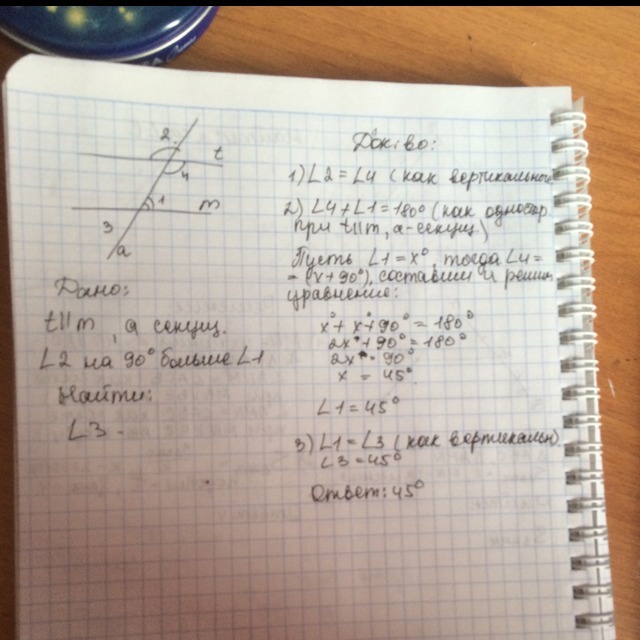 2
t
4
1
m
3
a
Дано:
t||m, a секущ.
∠2 на 90° больше ∠1
Найти:
∠3 -
Док-во:
1) ∠2 = ∠4 (как вертикальные
2) ∠4 + ∠1 = 180° (как одностор.
при t||m, a-секущ.)
Пусть ∠1 = x°, тогда ∠4 =
= (x + 90°), составим и решим
уравнение:
x° + x° + 90° = 180°
2x° + 90° = 180°
2x° = 90°
x = 45°
∠1 = 45°
3) ∠1 = ∠3 (как вертикальн)
∠3 = 45°
Ответ: 45°